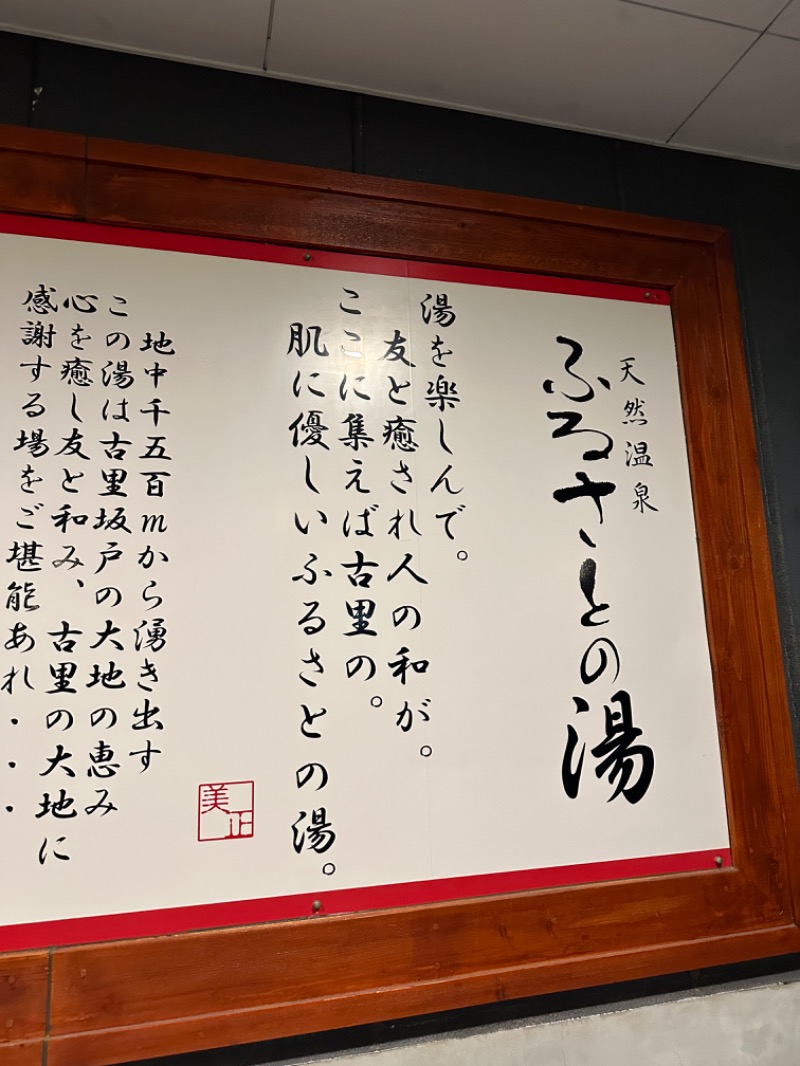 天然温泉
ふるさとの湯
湯を楽しんで。
友と癒され人の和が。
ここに集えば古里の。
肌に優しいふるさとの湯。
美正
地中千五百mから湧き出す
この湯は古里坂戸の大地の恵み
心を癒し友と和み、古里の大地に
感謝する場をご堪能あれ・・・